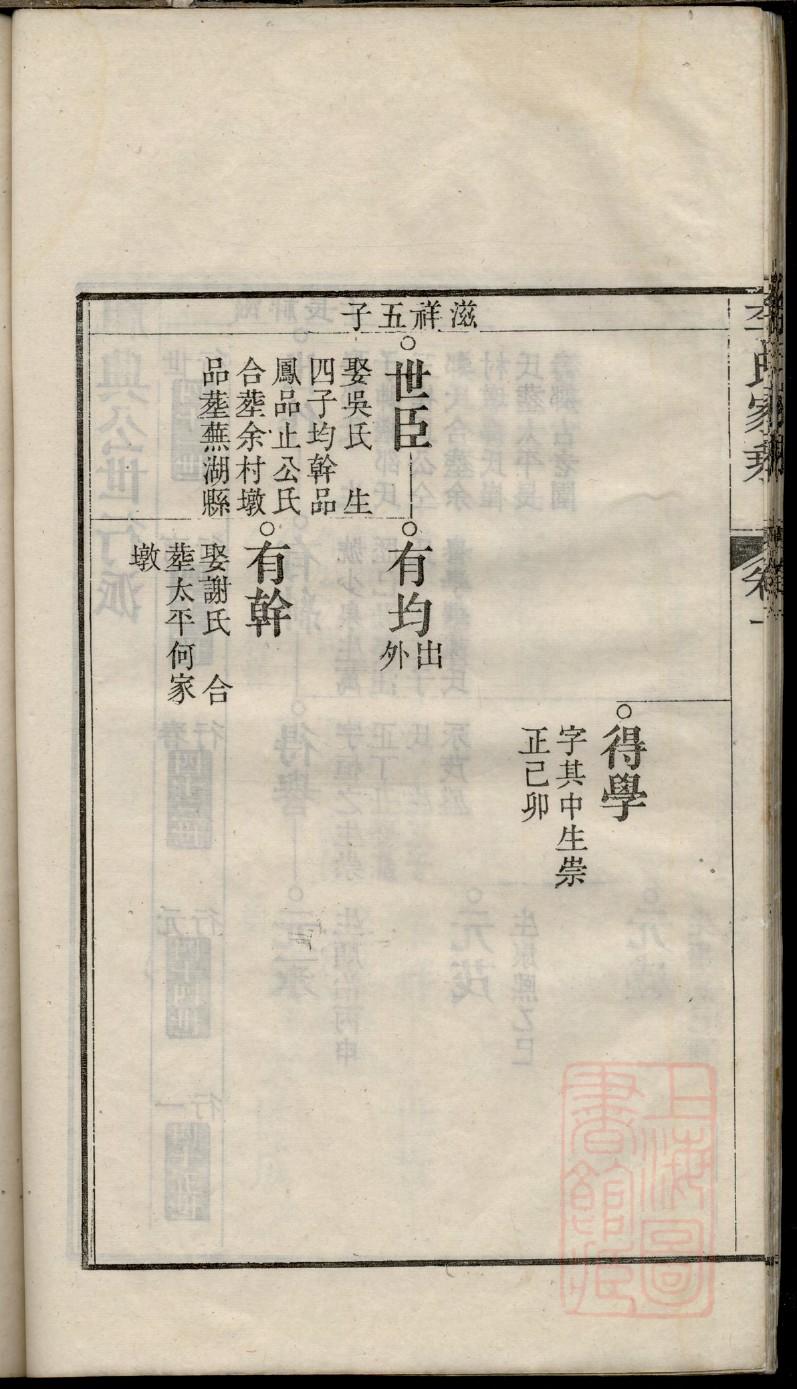 滋祥五子
得學
字其中生崇
正己卯
世臣
娶吳氏 生
四子均幹品
鳳品止公氏
合塟余村墩
品塟蕪湖縣
有均
出
外
有幹
娶謝氏 合
塟太平何家
墩
上海圖
書館藏